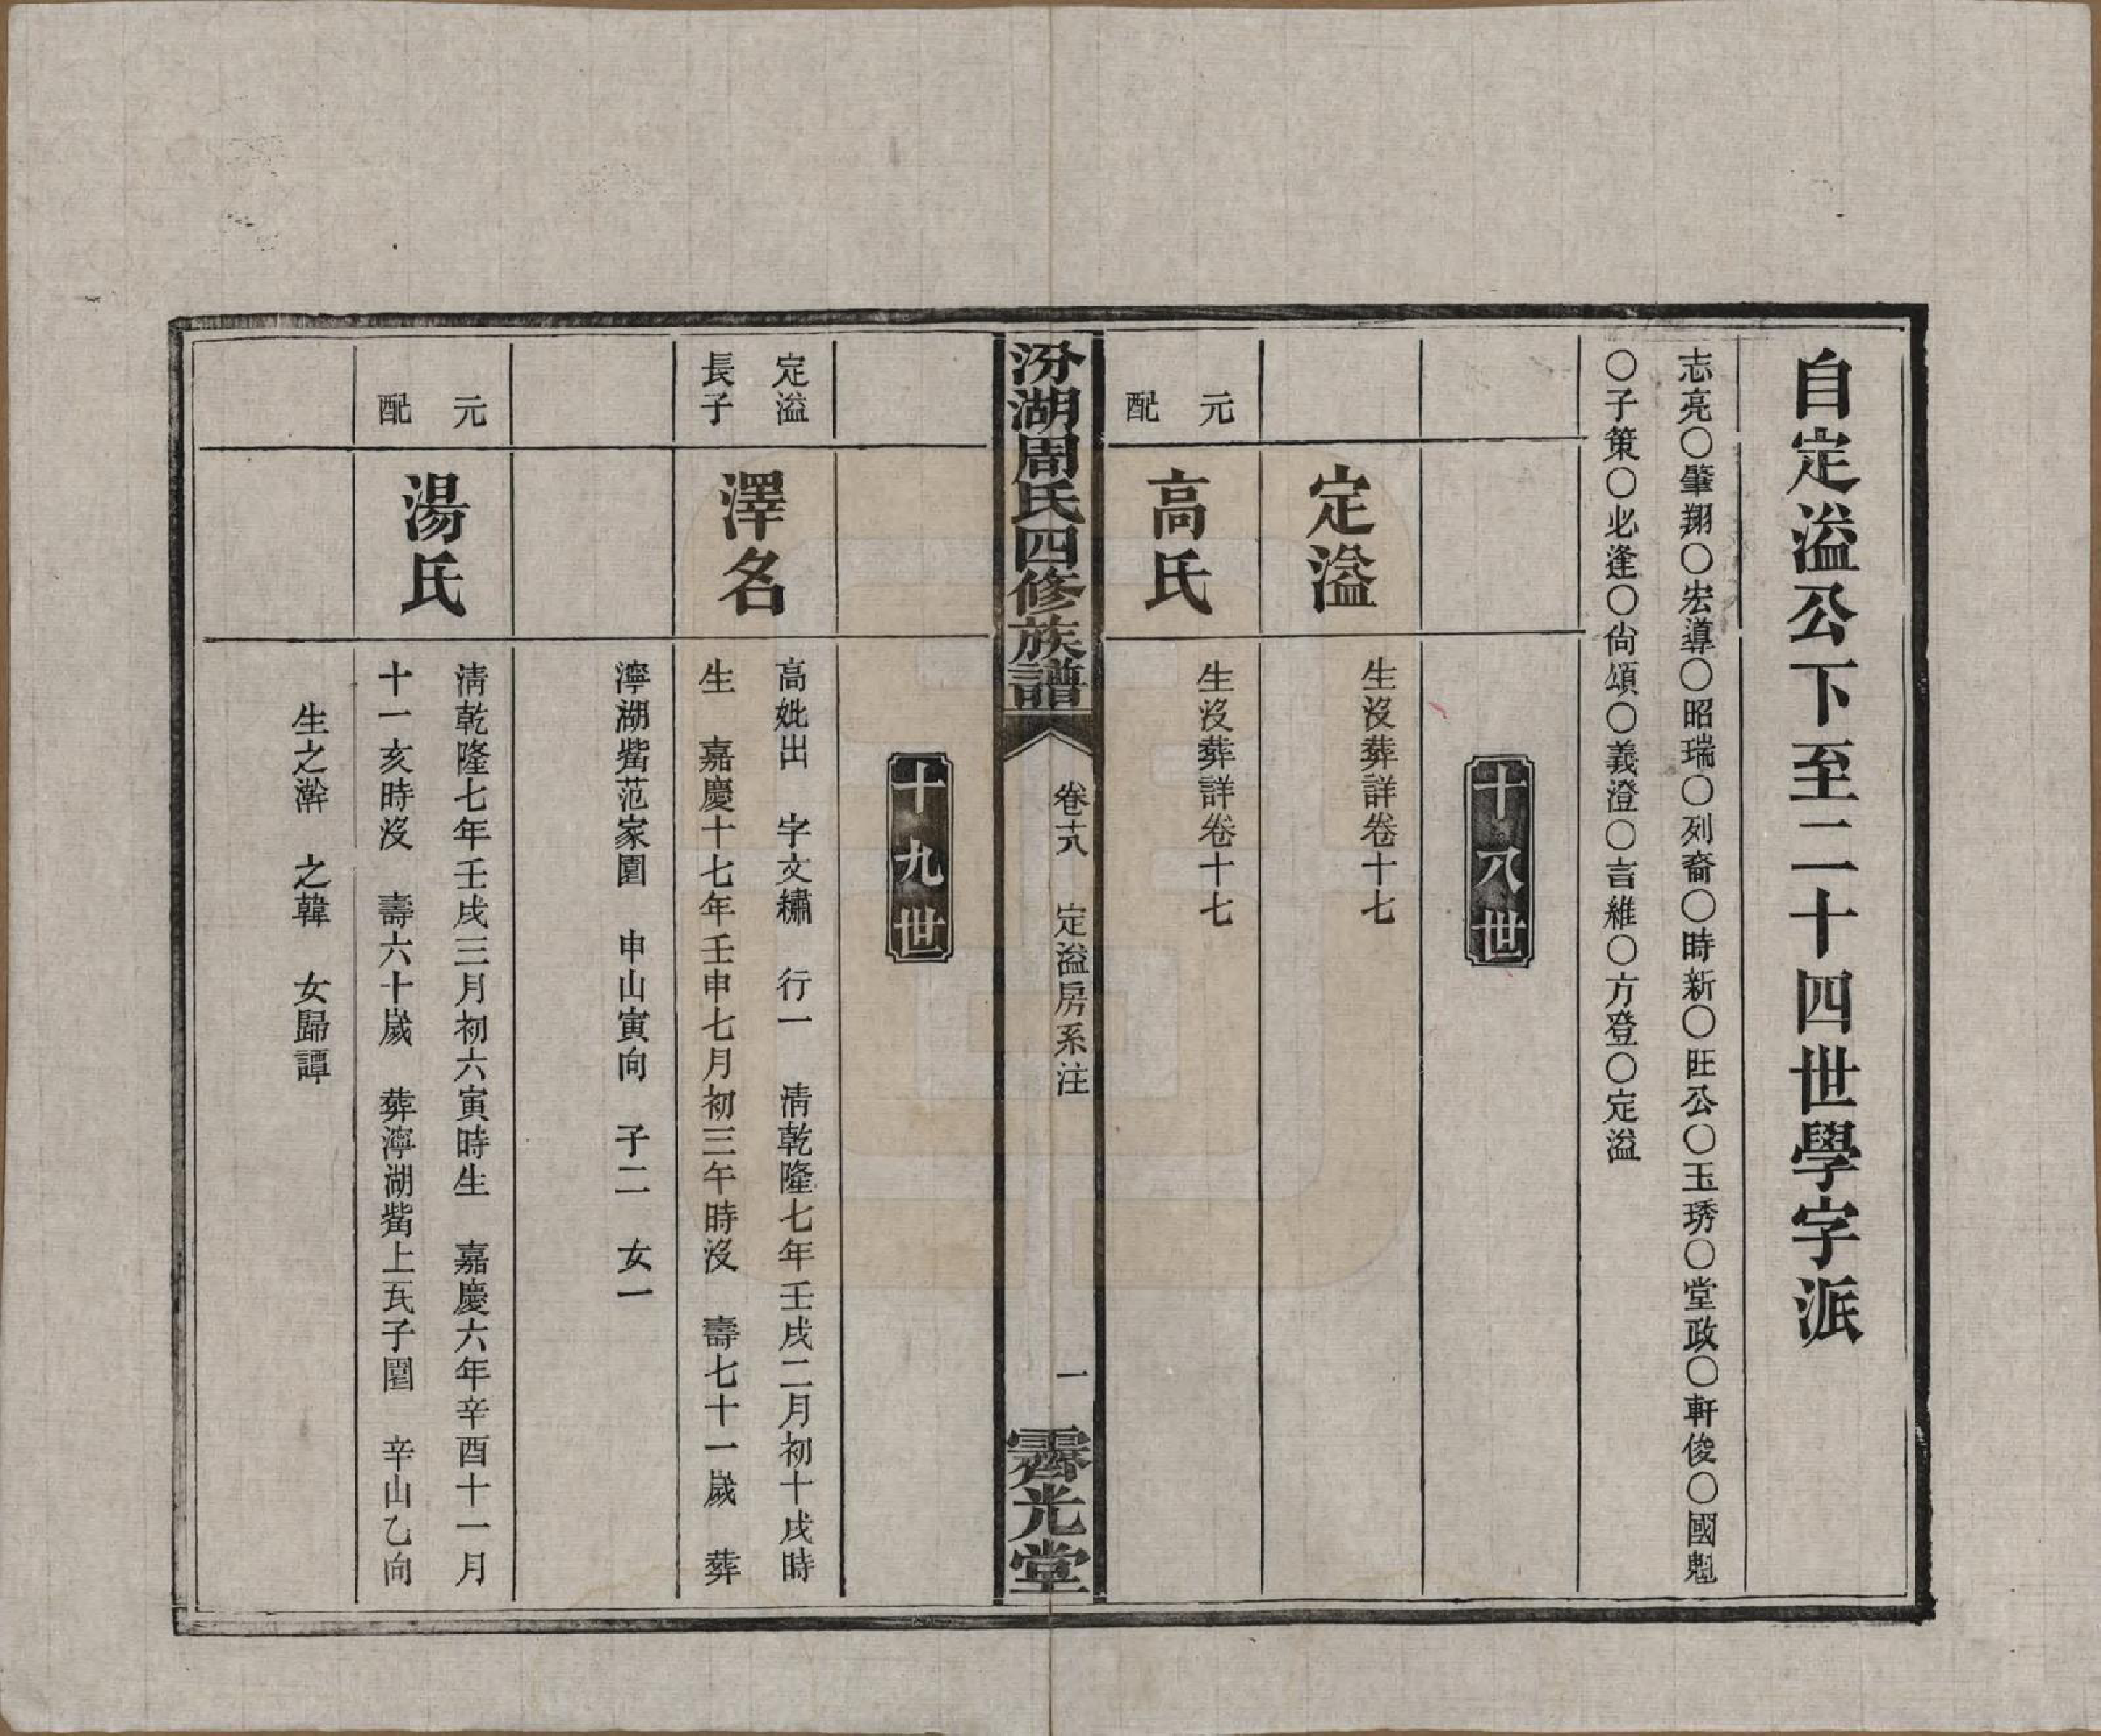 自定溢公下至二十四世學字派
志亮○肇翔○宏導○昭瑞○列裔○時新○旺公○玉琇○堂政○軒俊○國魁
○子策○必逢○尙頌○義澄○言維○方登○定溢
十八世
定溢
生沒葬詳卷十七
元配
高氏
生沒葬詳卷十七
汾湖周氏四修族譜
卷十八 定溢房系注
一
霽光堂
十九世
定溢
長子
澤名
高妣出 字文繡 行一 淸乾隆七年壬戌二月初十戌時
生 嘉慶十七年壬申七月初三午時沒 壽七十一歲 葬
濘湖觜范家園 申山寅向 子二 女一
元配
湯氏
淸乾隆七年壬戌三月初六寅時生 嘉慶六年辛酉十一月
十一亥時沒 壽六十歲 葬濘湖觜上瓦子園 辛山乙向
生之澣 之韓 女歸譚